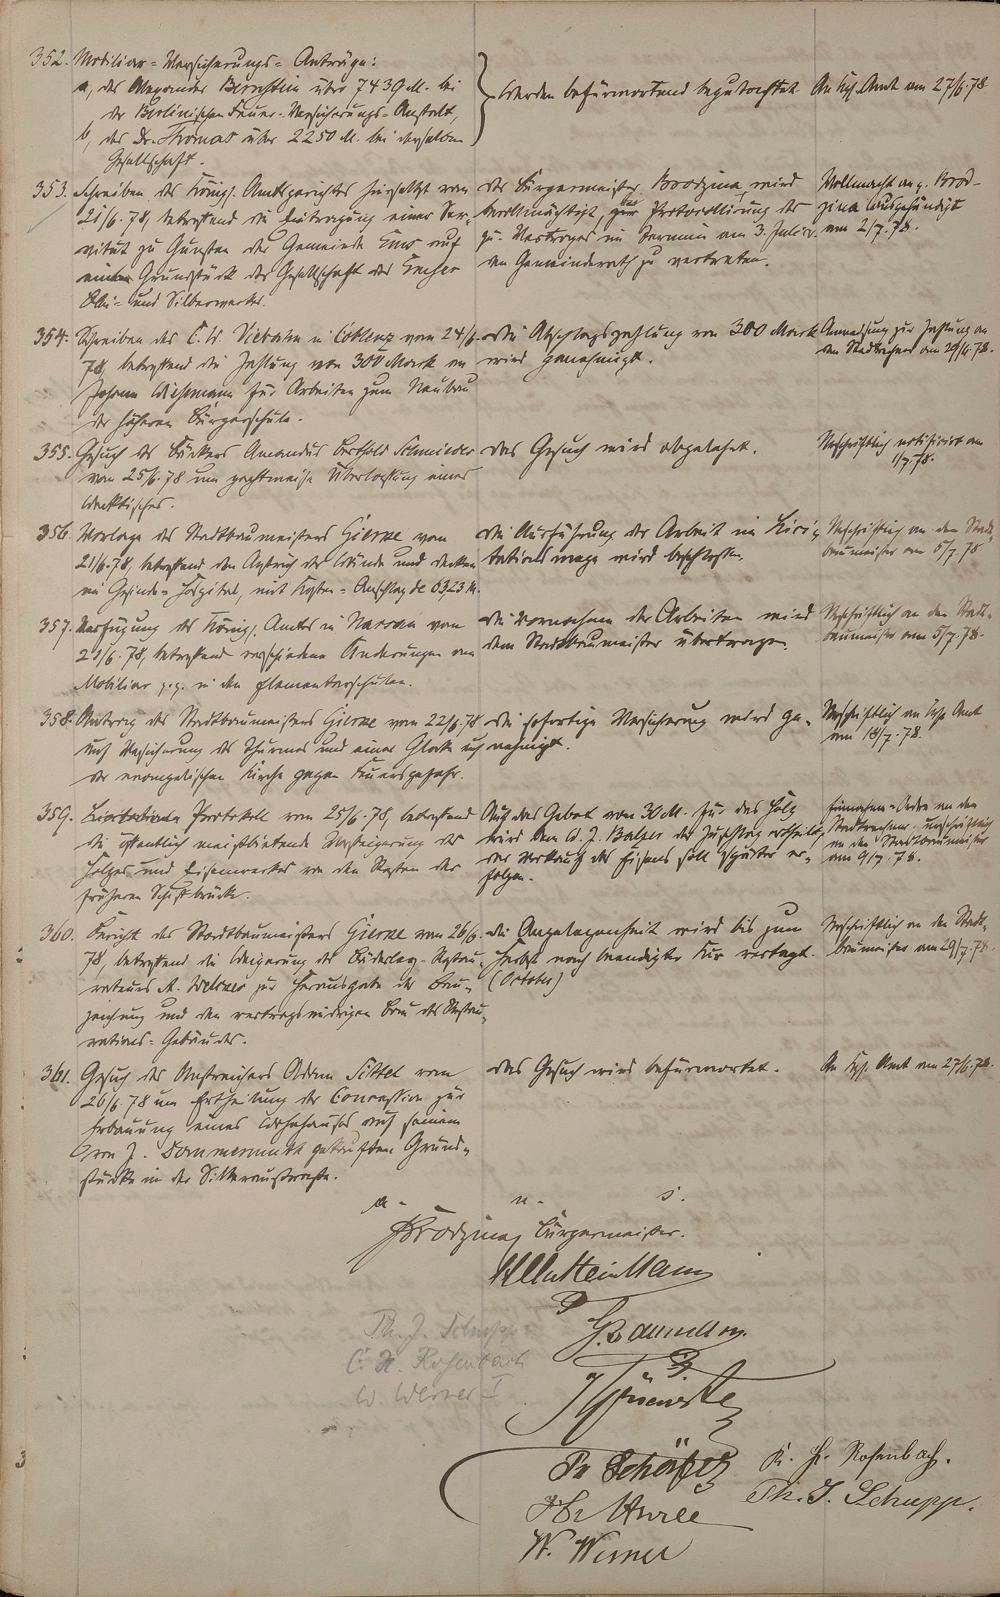 352. Mobiliar-Versicherungs-Anträge:
a, des Alexander Bernstein über 7439 M. bei
der Berlinischen Feuer-Versicherungs-Anstalt,
b, des Dr. Thomas über 2250 M. bei derselben
Gesellschaft.
Werden befürwortend begutachtet.
An Kgl. Amt am 27/6.78.
353. Schreiben des Königl. Amtsgerichts hierselbst vom
21/6.78, betreffend die Eintragung einer Ser-
vitut zu Gunsten der Gemeinde Ems auf
Grundstück der Gesellschaft des Emser
Blei- und Silberwerks.
Der Bürgermeister Brodzina wird
bevollmächtigt, Protocollirung des
qu. Vertrages im Termin am 3. Juli
den Gemeinderath zu vertreten.
Vollmacht an p. Brod-
zina ausgehändigt
am 2/7.78.
354. Schreiben des C. W. in Coblenz vom 24/6.
78, betreffend die Zahlung von 300 Mark an
Johann für Arbeiten zum Neubau
der höheren Bürgerschule.
Die Abschlagszahlung von 300 Mark
wird genehmigt.
Anweisung zur Zahlung an
den Stadtrechner am 29/6.78.
355. Gesuch des Bäckers Amandus Berthold Schmieder
vom 25/6.78 um pachtweise Überlassung eines
Markttisches.
Das Gesuch wird abgelehnt.
Abschriftlich notificirt am
1/7.78.
356. Vorlage des Stadtbaumeisters Gierke vom
21/6.78, betreffend den Anstrich der Wände und Decken
im Gesinde-Hospital, mit Kosten-Anschlag de 63,23 M.
Die Ausführung der Arbeit im Lici-
tationswege wird beschlossen.
Abschriftlich an den Stadt-
baumeister am 5/7.78
357. Verfügung des Königl. Amts in Nassau vom
21/6.78, betreffend verschiedene Änderungen am
Mobiliar p.p. in den Elementarschulen.
Die Vornahme der Arbeiten wird
dem Stadtbaumeister übertragen.
Abschriftlich an den Stadt-
baumeister am 5/7.78.
358. Antrag des Stadtbaumeisters Gierke vom 22/6.78
auf Versicherung des Thurmes und einer Glocke auf
der evangelischen Kirche gegen Feuersgefahr.
Die sofortige Versicherung wird ge-
nehmigt.
Abschriftlich an Kgl. Amt
am 18/7.78.
359. Licitations Protokoll vom 25/6.78, betreffend
die öffentlich meistbietende Versteigerung des
Holzes und Eisenwerkes von den Resten der
früheren Schiffbrücke.
Auf das Gebot von 30 M. für das Holz
wird dem W. J. Balzer der Zuschlag ertheilt,
der Verkauf des Eisens soll später er-
folgen.
Einnahme-Ordre an den
Stadtrechner, abschriftlich
an den Stadtbaumeister
am 9/7.78.
360. Bericht des Stadtbaumeisters Gierke vom 26/6.
78, betreffend die Weigerung des Restau-
rateurs A. Werner zur Herausgabe der Bau-
zeichnung und den vertragswidrigen Bau des Restau-
rations-Gebäudes.
Die Angelegenheit wird bis zum
Herbst nach beendigter Kur vertagt.
(October)
Abschriftlich an den Stadt-
baumeister am 29/7.78.
361. Gesuch des Anstreichers Adam Sittel vom
26/6.78 um Ertheilung der Concession zur
Erbauung eines Wohnhauses auf seinem
von J. Dommermuth gekauften Grund-
stücke in der
Das Gesuch wird befürwortet.
An Kgl. Amt am 27/6.78.
a. u. s.
Brodzina, Bürgermeister.
Th. J. Schupp
C. H. Rosenbach
W. Werner I
Schäfer
K. H. Rosenbach.
Th. J. Schupp.
W. Werner